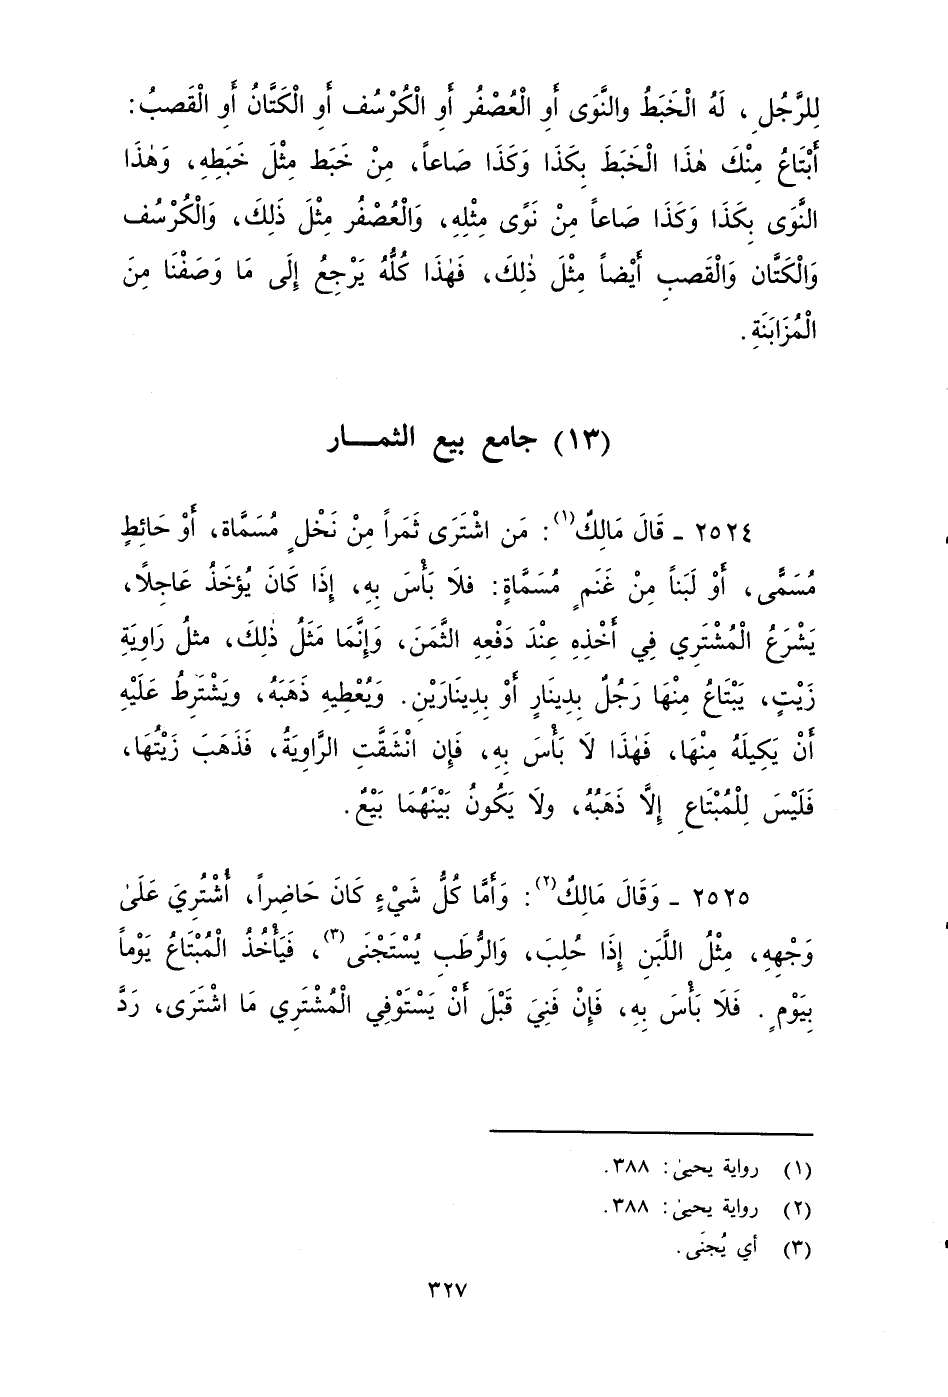 لِلرَّجُلِ، لَهُ الْخَبَطُ والنَّوَى أَو الْعُصْفُر أَو الْكُرْسُف أَو الْكَتَّانُ أَو الْقَصبُ:
أَبْتَاعُ مِنْكَ هٰذَا الْخَبَطَ بِكَذَا وَكَذَا صَاعاً، مِنْ خَبَط مِثْلَ خَبَطِهِ، وَهٰذَا
النَّوَى بِكَذَا وَكَذَا صَاعاً مِنْ نَوًى مِثْلِهِ، وَالْعُصْفُر مِثْلَ ذَلِكَ، وَالْكُرْسُف
وَالْكَتَّان وَالْقَصبِ أَيْضاً مِثْلَ ذٰلِكَ، فَهٰذَا كُلُّهُ يَرْجِعُ إِلَى مَا وَصَفْنَا مِنَ
الْمُزَابَنَةِ.
(١٣) جامع بيع الثمـــار
٢٥٢٤ ـ قَالَ مَالِكٌ(١): مَن اشْتَرَى ثَمَراً مِنْ نَخْلٍ مُسَمَّاة، أَوْ حَائِطٍ
مُسَمًّى، أَوْ لَبَناً مِنْ غَنَمٍ مُسَمَّاةٍ: فلَا بَأْسَ بِهِ، إِذَا كَانَ يُؤخَذُ عَاجِلاً،
يَشْرَعُ الْمُشْتَرِي فِي أَخْذِهِ عِنْدَ دَفْعِهِ الثَّمَنَ، وَإِنَّمَا مَثَلُ ذٰلِكَ، مثلُ رَاوِيَةِ
زَيْتٍ، يَبْتَاعُ مِنْهَا رَجُلٌ بِدِينَارٍ أَوْ بِدِينَارَيْن. وَيُعْطِيهِ ذَهَبَهُ، ويَشْتَرِطُ عَلَيْهِ
أَنْ يَكِيلَهُ مِنْهَا، فَهٰذَا لَا بَأْسَ بِهِ، فَإِن انْشَقَّتِ الرَّاوِيَةُ، فَذَهَبَ زَيْتُهَا،
فَلَيْسَ لِلْمُبْتَاعِ إِلَّا ذَهَبُهُ، ولَا يَكُونُ بَيْنَهُمَا بَيْعٌ.
٢٥٢٥ ـ وَقَالَ مَالِكٌ(٢): وَأَمَّا كُلُّ شَيْءٍ كَانَ حَاضِراً، أُشْتُرِيَ عَلَىٰ
وَجْهِهِ، مِثْلُ اللَّبَنِ إِذَا حُلِبَ، وَالرُّطَبِ يُسْتَجْنَى(٣)، فَيَأْخُذُ الْمُبْتَاعُ يَوْماً
بِيَوْمٍ. فَلَا بَأْسَ بِهِ، فَإِنْ فَنِيَ قَبْلَ أَنْ يَسْتَوْفِي الْمُشْتَرِي مَا اشْتَرَى، رَدَّ
(١) رواية يحيىٰ: ٣٨٨.
(٢) رواية يحيىٰ: ٣٨٨.
(٣) أي يُجنَى.
٣٢٧